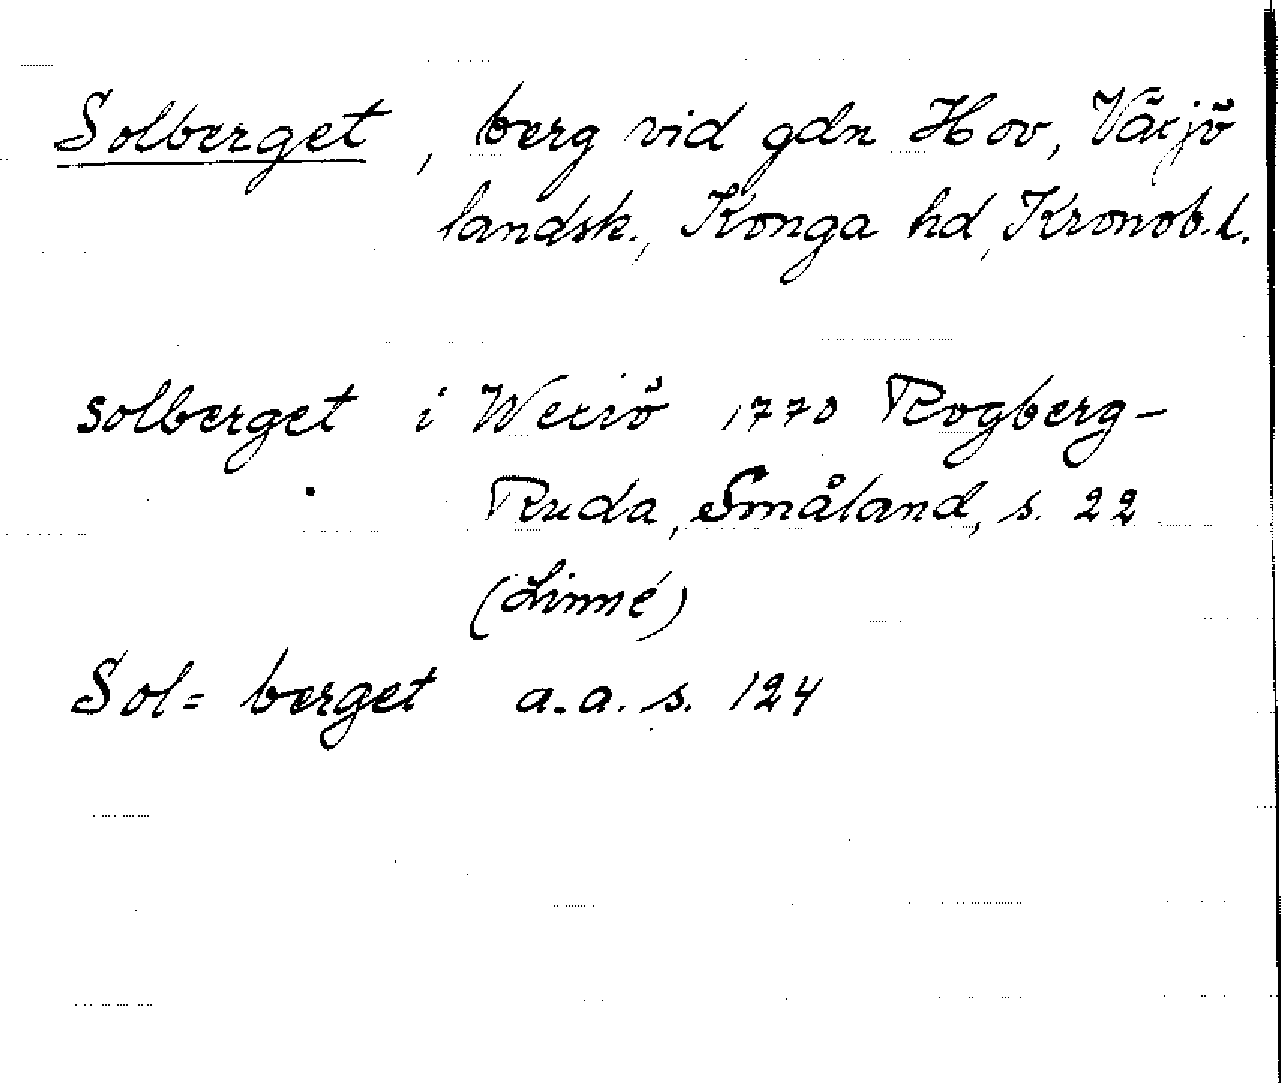 Solberget, berg vid gdn Hov, Växjö
landsk., Konga hd, Kronob.l.
solberget i Wexiö 1770 Rogberg-
Ruda, Småland, s. 22
(Linné)
Sol= berget a.a. s. 124